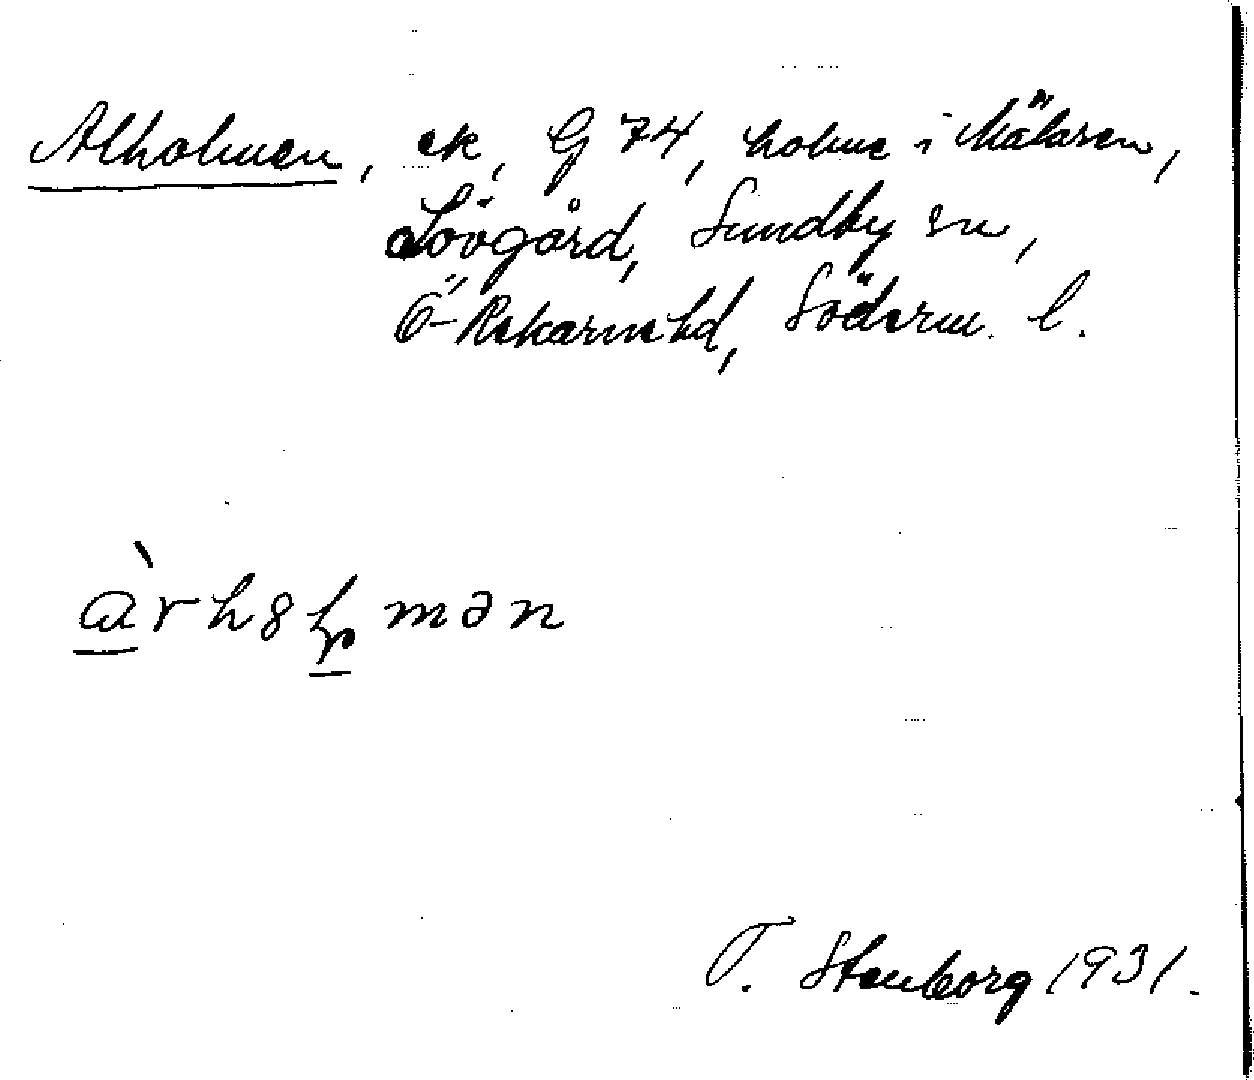 Alholmen, ek, G 74, holme i Mälaren,
Lövgård, Sundby sn,
Ö-Rekarne hd, Söderm. l.
T. Stenborg 1931.